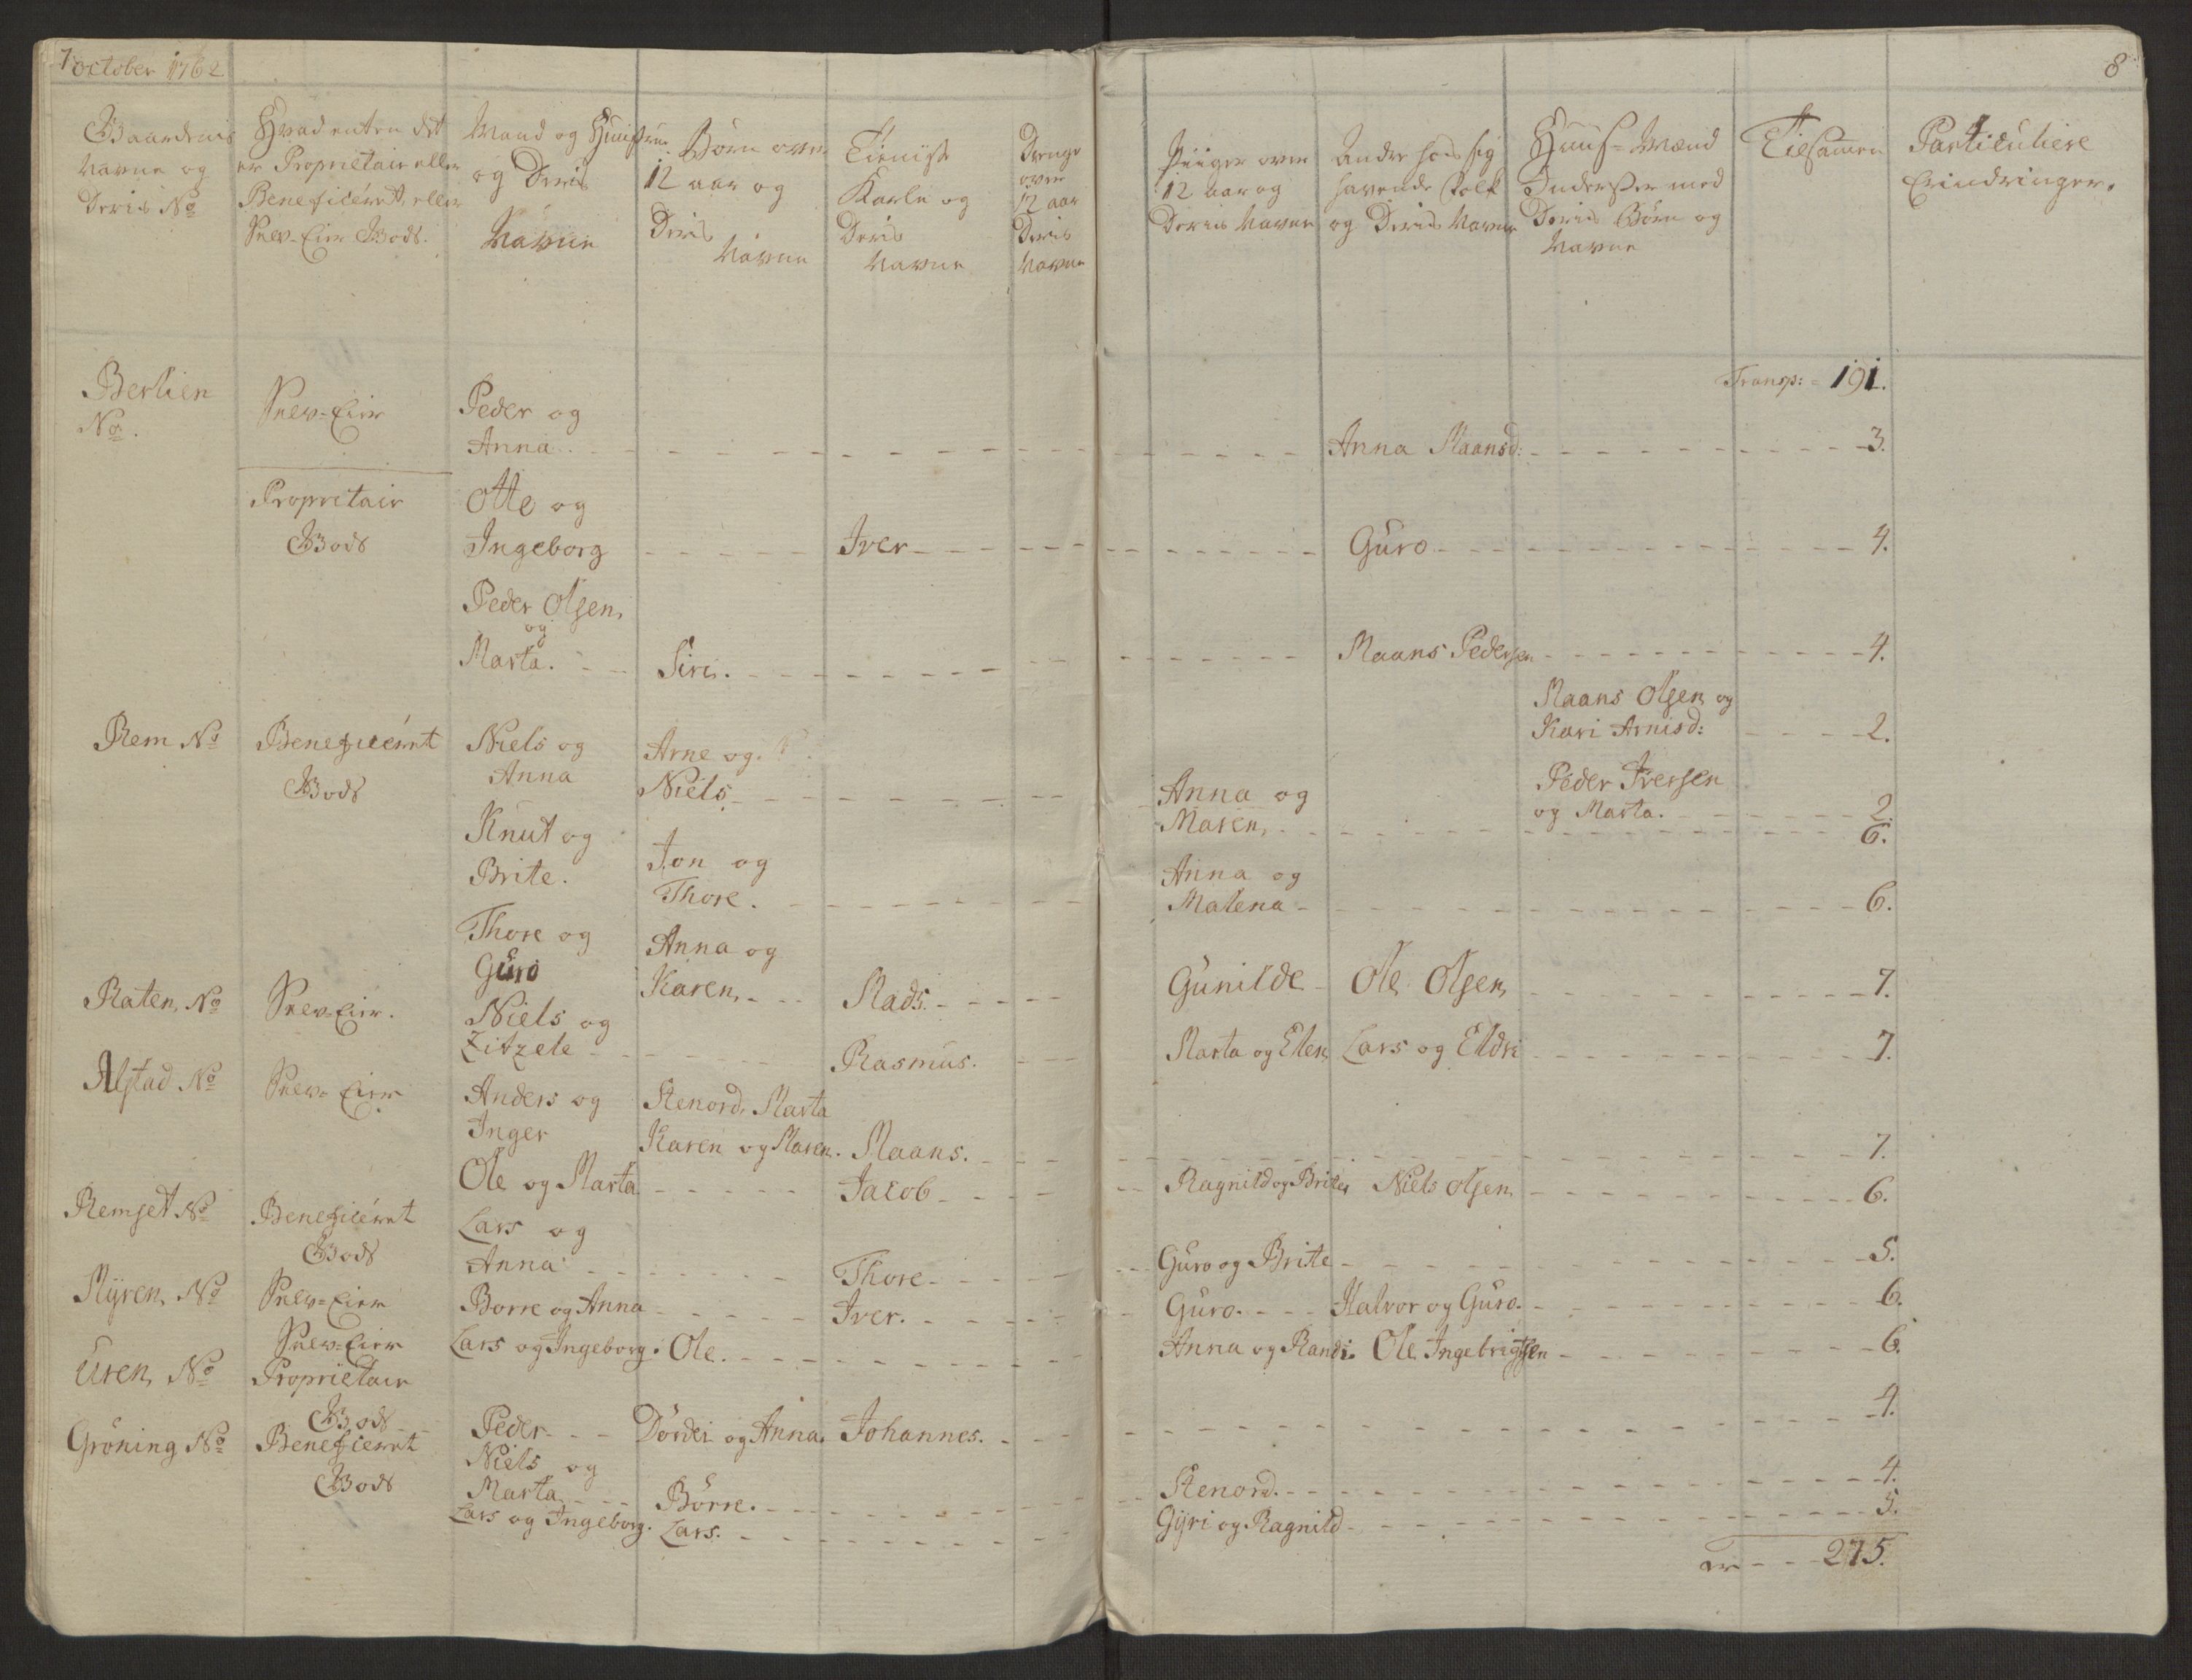 7 October 1762
8
Gaardenis Navne og Deris No
Hvad enten det er Proprietair eller Beneficeret, eller Selv-Eier Gods.
Mand og Huustrue og Deris Navne
Børn over 12 aar og Deris Navne
Tieniste Karle og Deris Navne
Drenge over 12 aar Deris Navne
Piiger over 12 aar og Deris Navne
Andre hos sig havende Folk og Deris Navne
Huus-Mænd Inderster med Deris Børn og Navne
Tilsamen
Particuliere Erindringer.
Transp: 191.
Berlien No.
Selv-Eier
Peder og
Anna
Anna Maansd: 3.
Proprietair
Gods
Otte og
Ingeborg
Iver
Guro
4.
Peder Olsen,
og
Marta.
Siri.
Maans Pedersen
4.
Maans Olsen og
Kari Arnisd:
2.
Peder Iversen
og Marta.
2.
Rem No
Beneficeret
Gods
Niels og
Anna
Arne og
Niels
Anna og
Maren,
6.
Knut og
Brite.
Jon og
Thore.
Anna og
Malena
6.
Thore og
Guro
Anna og
Karen,
Mads.
Gunilde
Ole Olsen
7.
Raten, No
Selv-Eier.
Niels og
Zitzele
Rasmus.
Marta og Elen
Lars og Eldri
7.
Alstad No
Selv-Eier
Anders og
Inger
Stenord, Marta
Karen og Maren.
Maans.
7.
Ole og Marta
Jacob
Ragnild og Brite
Niels Olsen
6.
Remset No
Beneficeret
Gods
Lars og
Anna
Thore
Guro og Brite
5.
Myren, No
Selv-Eier
Borre og Anna
Iver.
Guro.
Halvor og Guro.
6.
Selv-Eier
Lars og Ingeborg.
Ole.
Anna og Randi.
Ole Ingebrigtsen
6.
Uren, No
Proprietair
Gods
Peder
Dordei og Anna.
Johannes.
4.
Gröning No
Beneficeret
Gods
Niels og
Marta
Börre.
Stenord.
4.
Lars og Ingeborg.
Lars.
Gyri og Ragnild
5.
275.